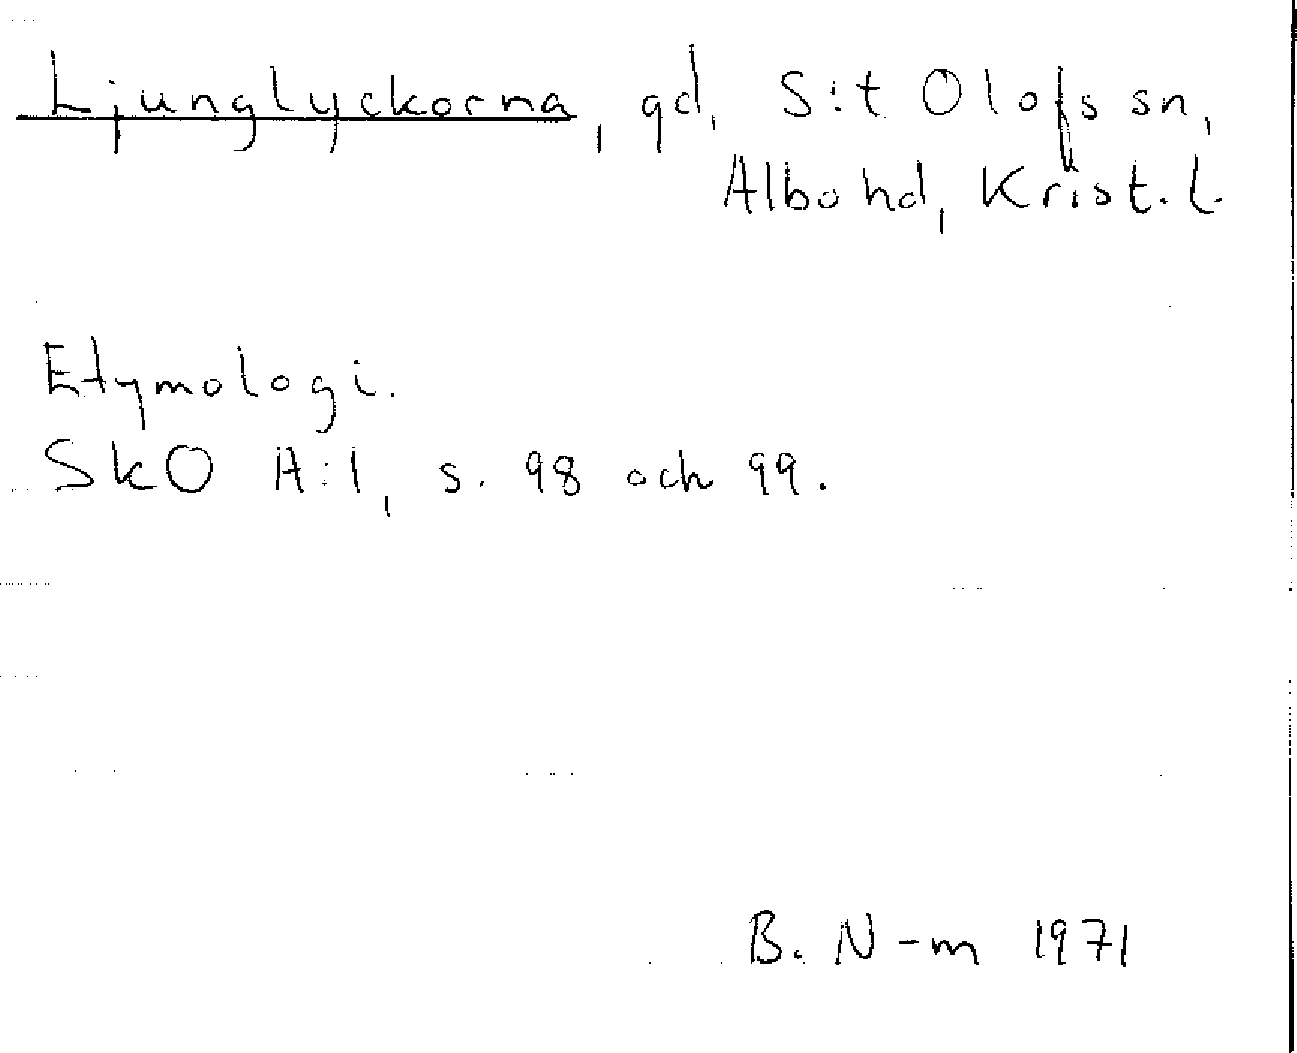 Ljunglyckorna, gd, S:t Olofs sn,
Albo hd, Krist. l.
Etymologi.
SkO A:1, s. 98 och 99.
B. N-m 1971